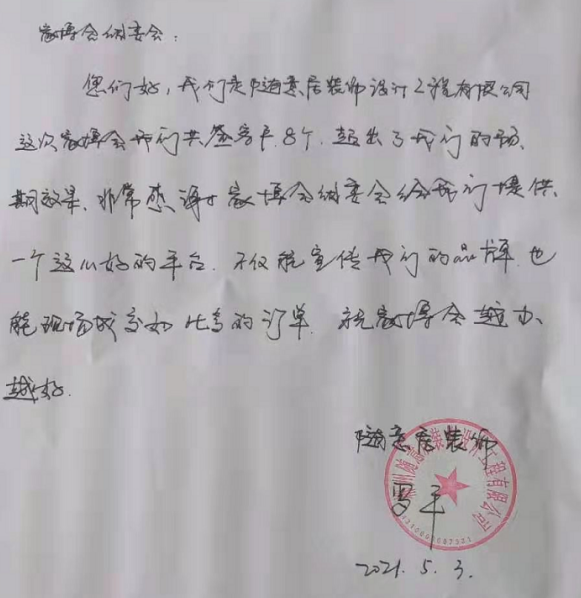 家博会组委会：
您们好，我们是随意居装饰设计工程有限公司
这次家博会我们共签客户8个，超出了我们的预
期效果，非常感谢家博会组委会给我们提供
一个这么好的平台，不仅能宣传我们的品牌，也
能现场成交如此多的订单，祝家博会越办
越好。
随意居装饰
罗平
2021.5.3.